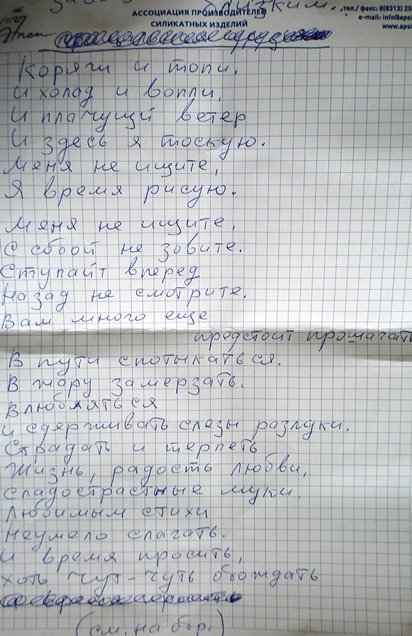 близким.
АССОЦИАЦИЯ ПРОИЗВОДИТЕЛЕЙ
СИЛИКАТНЫХ ИЗДЕЛИЙ
тел./ факс: 8(8312) 25
e-mail: info@aps
www.aps
Коряги и топи,
И холод и вопли,
И плачущий ветер
И здесь я тоскую.
Меня не ищите,
Я время рисую.
Меня не ищите,
С сбоой не зовите.
Ступайт вперед
Назад не смотрите.
Вам много еще
предстоит прошагать
В пути спотыкаться.
В жару замерзать.
Влюбляться
и сдерживать слезы разлуки.
Страдать и терпеть
Жизнь, радость любви,
сладострастные муки.
Любимым стихи
Неумело слагать.
И время просить,
хоть чут-чуть обождать
(см. на обр.)